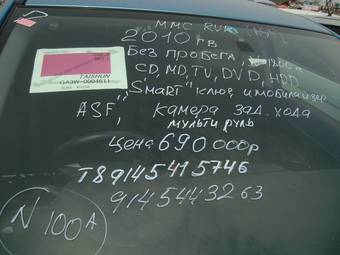 MMC RVR
2010 гв
Без пробега,
CD, MD, TV, DVD, HDD
"Smart" ключ, иммобилайзер
TAISHUN
GA3W-0004611
ASF, камера зад. хода
мульти руль
цена 690 000р
т89145415746
9145443263
N 100A